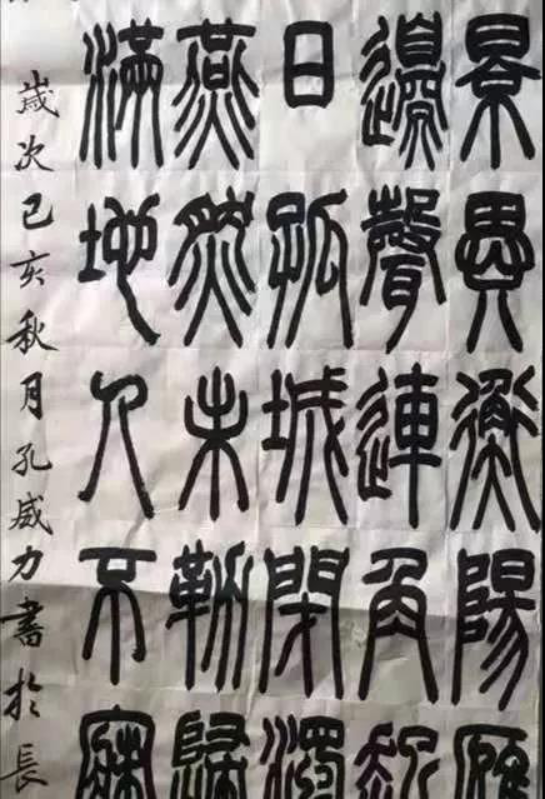 景異衡陽雁
邊聲連角起
日孤城閉濁
燕然未勒歸
滿地人不寐
歲次己亥秋月孔威力書於長